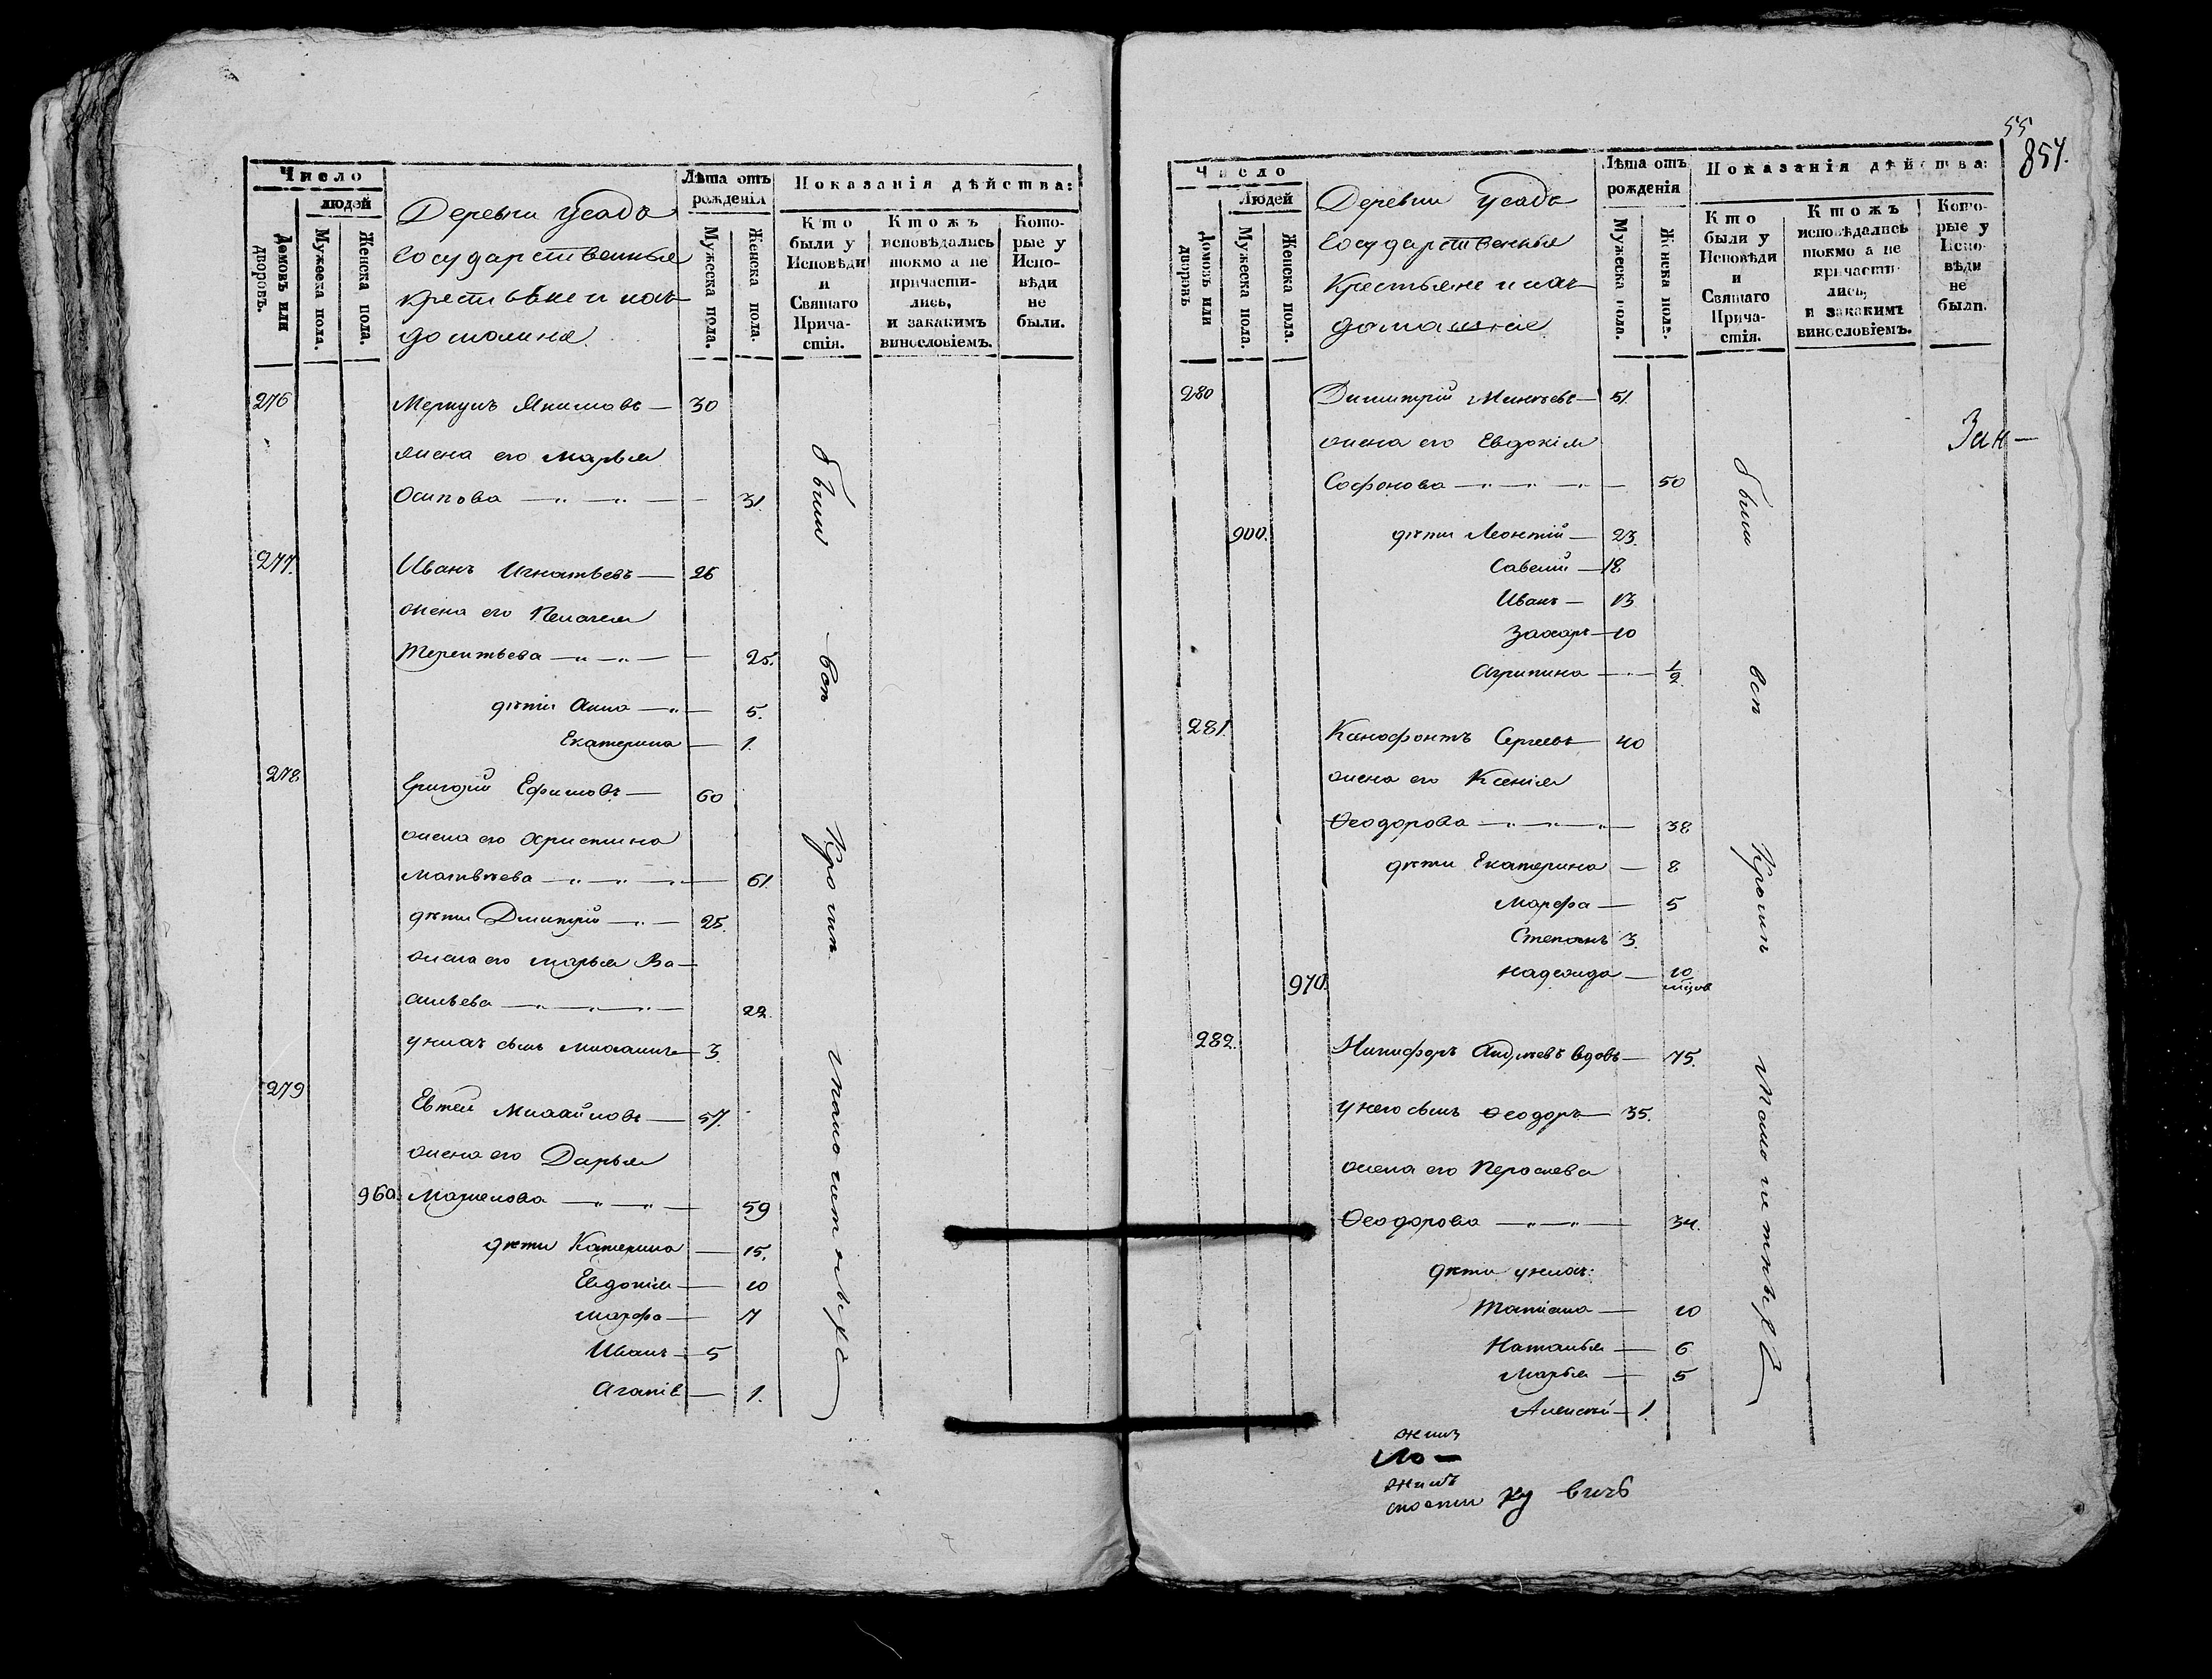 Число
людей
Домовъ или дворовъ.
Мужеска пола.
Женска пола.
Деревни Усадъ
Государственныя
крестьяне и ихъ
домашніе
Лѣта отъ рожденія
Мужеска пола.
Женска пола.
Показанія дѣйства:
Кто были у Исповѣди и Святаго Прича-стія.
Ктожъ исповѣдались токмо а не причасти-лись, и закакимъ винословіемъ.
Кото-рые у Испо-вѣди не были.
276 Меркулъ Якимовъ — 30
жена его Марья
Осипова — 31
277. Иванъ Игнатьевъ — 26
жена его Пелагея
Терентьева — 25.
дѣти Анна — 5.
Екатерина — 1.
278 Григорій Ефимовъ — 60
жена его Христина
Матвѣева — 61.
дѣти Дмитрій — 25.
жена его Марья Ва-
сильева — 22.
у нихъ сынъ Михаилъ 3.
279 Евтей Михайловъ — 57.
жена его Дарья
960. — 59
дѣти Катерина — 15.
Евдокія — 10
Марфа — 7
Иванъ — 5
Агапія — 1.
были всѣ Кромѣ малолетныхъ
55
857.
Число
Людей
Домовъ или дворовъ
Мужеска пола.
Женска пола.
Деревни Усадъ
Государственныя
Крестьяне и ихъ
домашніе
Лѣта отъ рожденія
Мужеска пола.
Женска пола.
Показанія дѣйства:
Кто были у Исповѣди и Святаго Прича-стія.
Ктожъ исповѣдались токмо а не причасти-лись, и закакимъ винословіемъ.
Кото-рые у Испо-вѣди не были.
280 Димитрій — 51.
жена его Евдокія
Софонова — 50
900. дѣти Леонтій — 23.
Савелій — 18
Иванъ — 13
Захаръ — 10
Агрипина — 1/2
281. Ксенофонтъ Сергеевъ — 40
жена его Ксенія
Ѳеодорова — 38
дѣти Екатерина — 8
Марфа — 5
Степанъ 3.
970. Надежда — 10 мѣсяцов
282. Никифоръ Андреевъ вдовъ — 75.
у него сынъ Ѳеодоръ — 35.
жена его
Ѳеодорова — 34.
дѣти у нихъ:
Татіана — 10
Наталья — 6
Марья — 5
Алексѣй — 1.
были всѣ Кромѣ Малолетныхъ